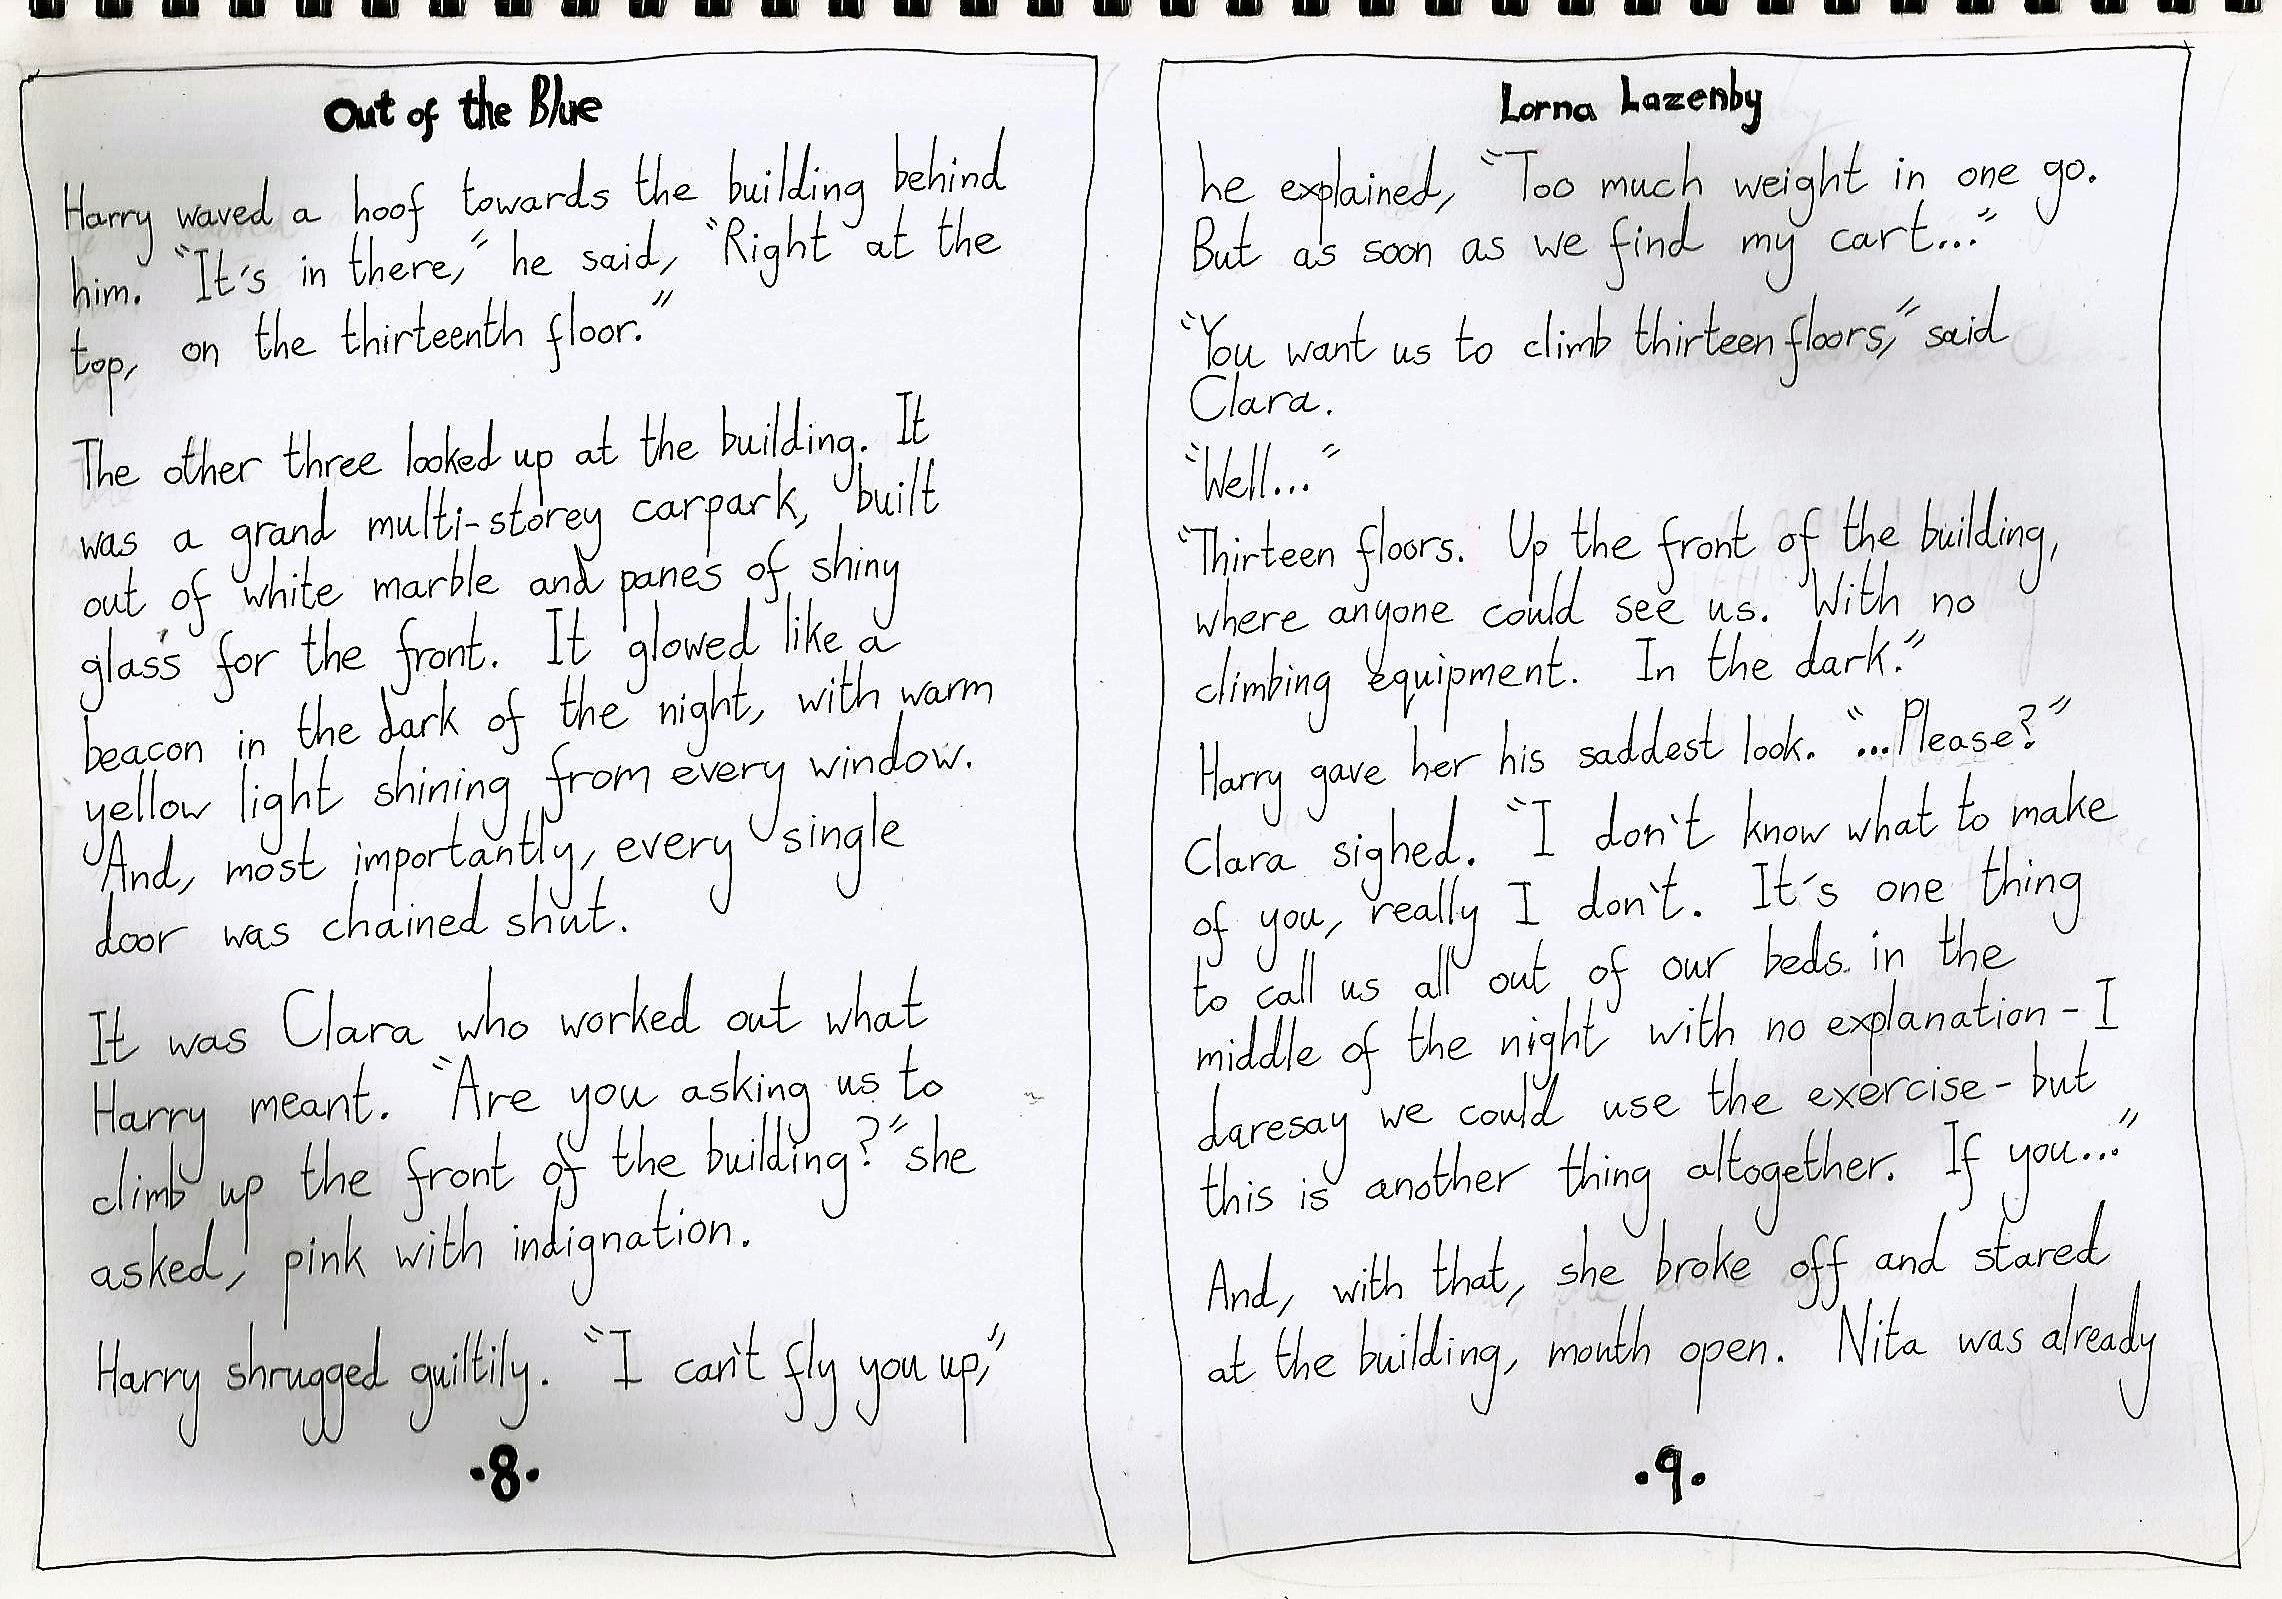 Out of the Blue
Harry waved a hoof towards the building behind
him. "It's in there," he said, "Right at the
top, on the thirteenth floor."
The other three looked up at the building. It
was a grand multi-storey carpark, built
out of white marble and panes of shiny
glass for the front. It glowed like a
beacon in the dark of the night, with warm
yellow light shining from every window.
And, most importantly, every single
door was chained shut.
It was Clara who worked out what
Harry meant. "Are you asking us to
climb up the front of the building?" she
asked, pink with indignation.
Harry shrugged guiltily. "I can't fly you up,"
·8·
Lorna Lazenby
he explained, "Too much weight in one go.
But as soon as we find my cart..."
"You want us to climb thirteen floors," said
Clara.
"Well..."
"Thirteen floors. Up the front of the building,
where anyone could see us. With no
climbing equipment. In the dark."
Harry gave her his saddest look. "...Please?"
Clara sighed. "I don't know what to make
of you, really I don't. It's one thing
to call us all out of our beds in the
middle of the night with no explanation - I
daresay we could use the exercise - but
this is another thing altogether. If you..."
And, with that, she broke off and stared
at the building, mouth open. Nita was already
·9·